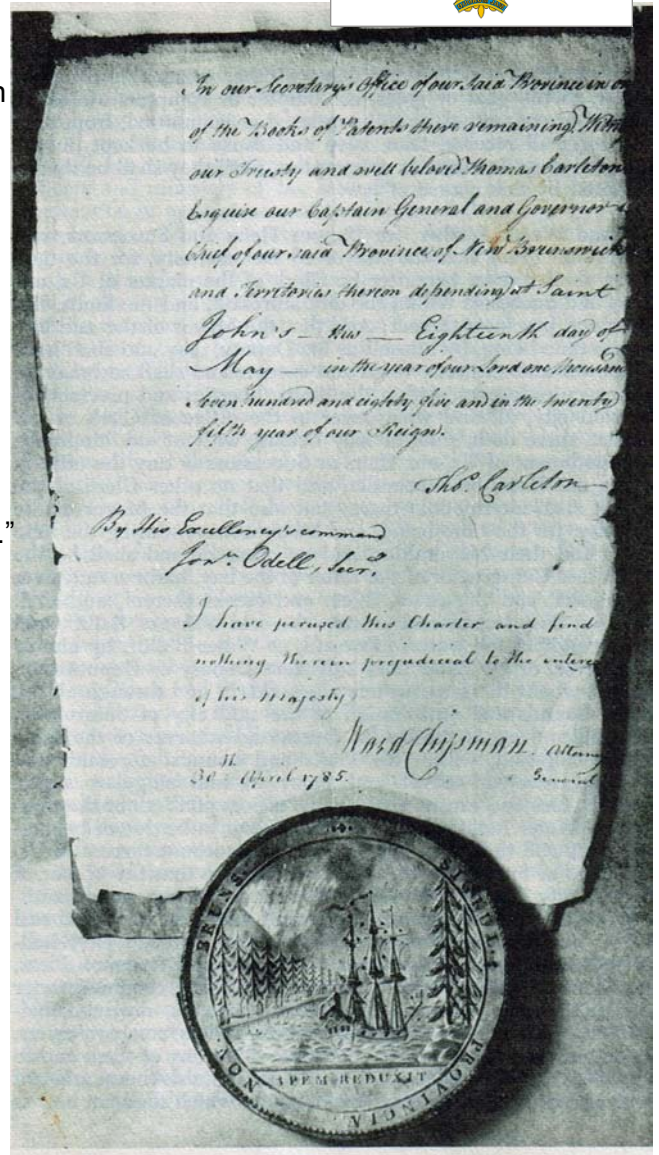 In our Secretary's Office of our said Province in
of the Books of Patents there remaining.
our Trusty and well beloved Thomas Carleton
Esquire our Captain General and Governor
Chief of our said Province of New Brunswick
and Territories thereon depending at Saint
John's — this — Eighteenth day of
May — in the year of our Lord one thousand
seven hundred and eighty five and in the twenty
fifth year of our Reign.
Tho.s Carleton
By His Excellency's command
Jon.n Odell, Secr.y
I have perused this Charter and find
nothing therein prejudicial to the
of his Majesty
Ward Chipman Attorney
30th April 1785. General
SIGILL:
PROVINCIÆ
NOV.
BRUNS.
SPEM REDUXIT